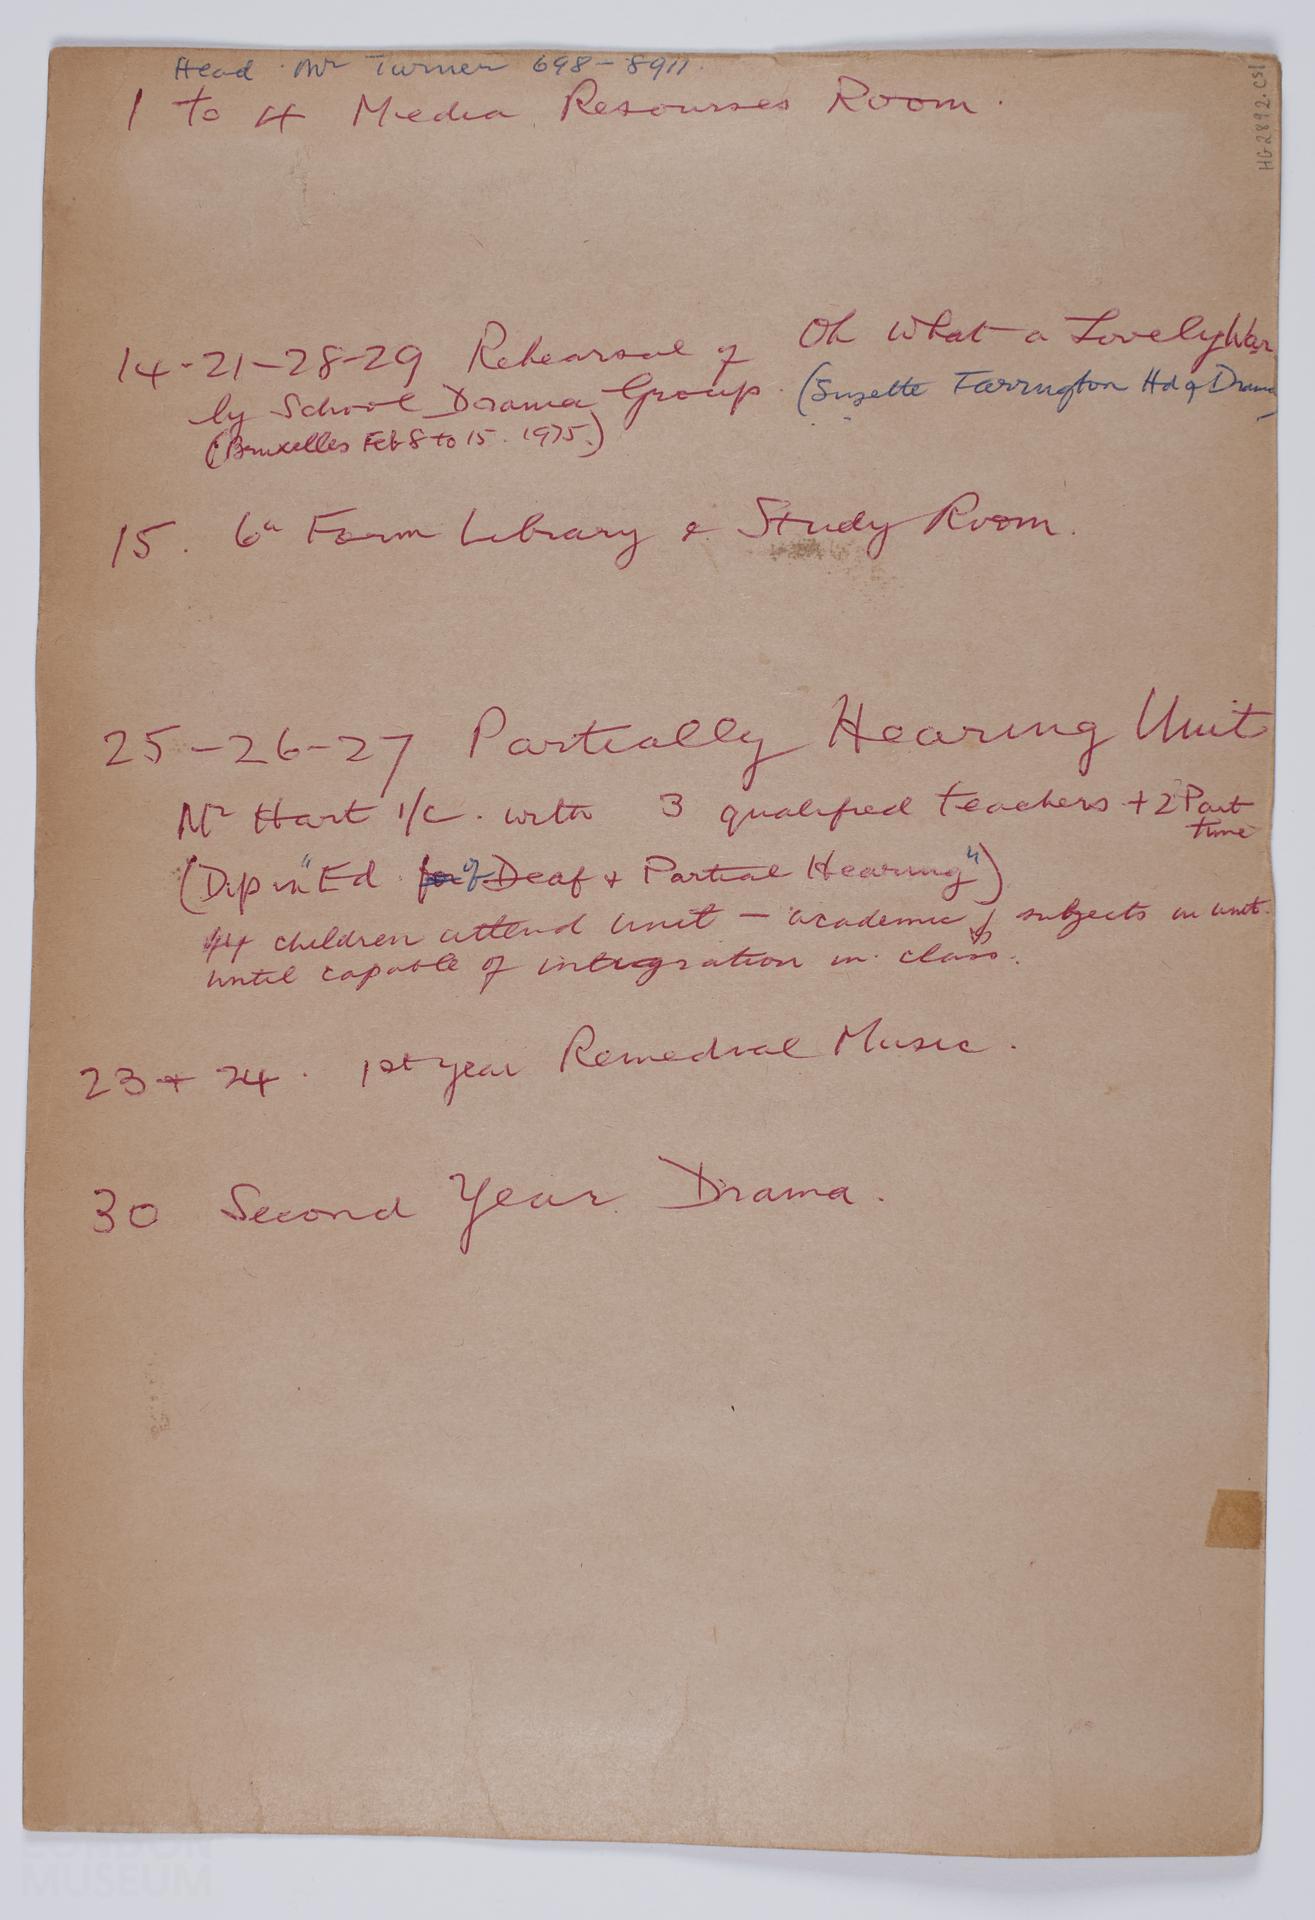 Head Mr Turner 698-8911.
HG2892.CS1
1 to 4 Media Resourses Room.
14-21-28-29 Rehearsal of Oh What a Lovely War
by School Drama Group. (Suzette Farrington Hd of Drama)
(Bruxelles Feb 8 to 15. 1975.)
15. 6th Form Library & Study Room.
25-26-27 Partially Hearing Unit
Mr Hart i/c. with 3 qualified teachers + 2 Part
time
(Dip in "Ed for of Deaf + Partial Hearing")
44 children attend unit - academic subjects in unit.
until capable of intigration in class.
23 + 24. 1st year Remedial Music.
30 Second Year Drama.
LONDON
MUSEUM